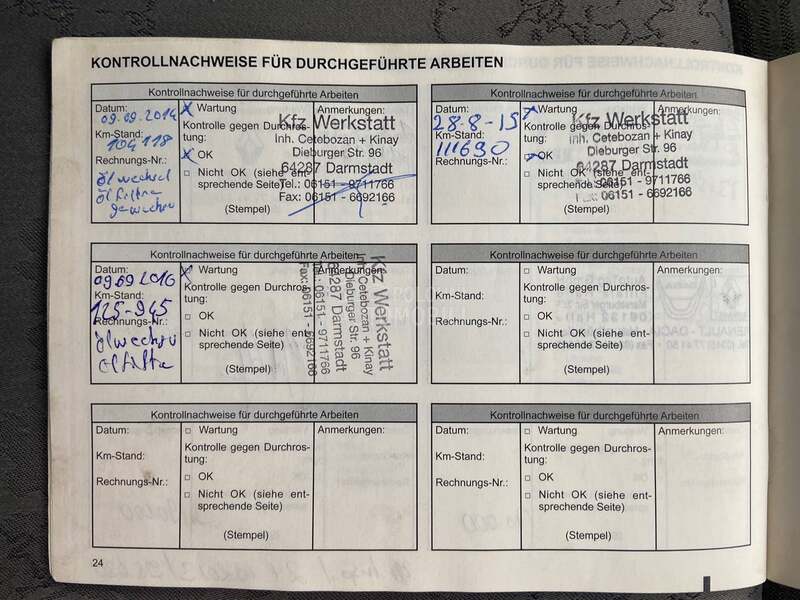 KONTROLLNACHWEISE FÜR DURCHGEFÜHRTE ARBEITEN
Kontrollnachweise für durchgeführte Arbeiten
Datum:
09.09.2014
Km-Stand:
104118
Rechnungs-Nr.:
ölwechsel
ölfiltre
Wartung
Kontrolle gegen Durchros-
tung:
OK
Nicht OK (siehe ent-
sprechende Seite)
(Stempel)
Anmerkungen:
Kfz Werkstatt
Inh. Cetebozan + Kinay
Dieburger Str. 96
64287 Darmstadt
Tel.: 06151 - 9711766
Fax: 06151 - 6692166
Kontrollnachweise für durchgeführte Arbeiten
Datum:
28-8-15
Km-Stand:
111690
Rechnungs-Nr.:
Wartung
Kontrolle gegen Durchros-
tung:
OK
Nicht OK (siehe ent-
sprechende Seite)
(Stempel)
Anmerkungen:
Kfz Werkstatt
Inh. Cetebozan + Kinay
Dieburger Str. 96
64287 Darmstadt
06151 - 9711766
06151 - 6692166
Kontrollnachweise für durchgeführte Arbeiten
Datum:
09.09.2016
Km-Stand:
125-945
Rechnungs-Nr.:
ölwechsel
Wartung
Kontrolle gegen Durchros-
tung:
OK
Nicht OK (siehe ent-
sprechende Seite)
(Stempel)
Anmerkungen:
Kfz Werkstatt
Inh. Cetebozan + Kinay
Dieburger Str. 96
64287 Darmstadt
Tel.: 06151 - 9711766
Fax: 06151 - 6692166
Kontrollnachweise für durchgeführte Arbeiten
Datum:
Km-Stand:
Rechnungs-Nr.:
Wartung
Kontrolle gegen Durchros-
tung:
OK
Nicht OK (siehe ent-
sprechende Seite)
(Stempel)
Anmerkungen:
Kontrollnachweise für durchgeführte Arbeiten
Datum:
Km-Stand:
Rechnungs-Nr.:
Wartung
Kontrolle gegen Durchros-
tung:
OK
Nicht OK (siehe ent-
sprechende Seite)
(Stempel)
Anmerkungen:
Kontrollnachweise für durchgeführte Arbeiten
Datum:
Km-Stand:
Rechnungs-Nr.:
Wartung
Kontrolle gegen Durchros-
tung:
OK
Nicht OK (siehe ent-
sprechende Seite)
(Stempel)
Anmerkungen:
24